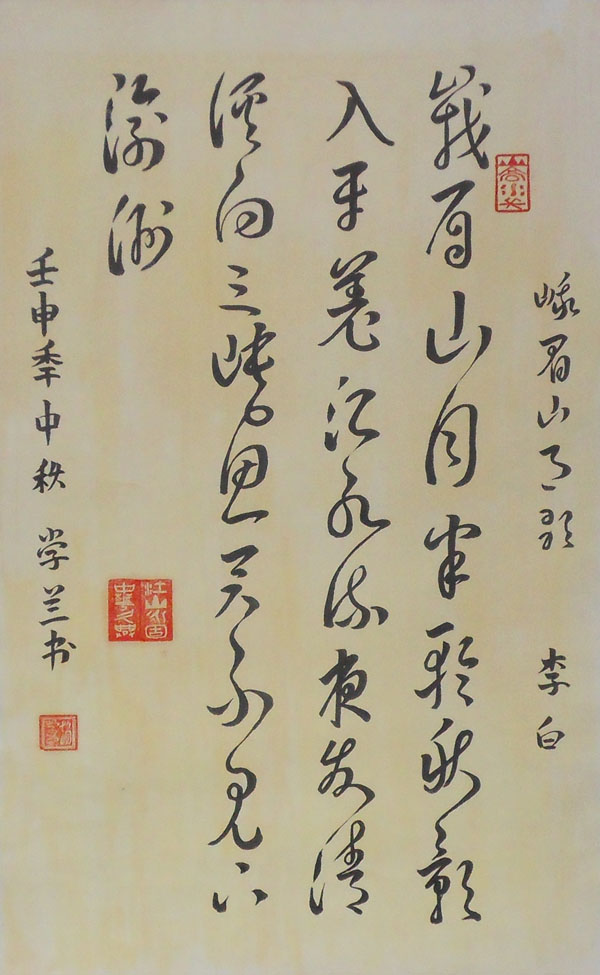 峨眉山月歌 李白
峩眉山月半轮秋影
入平羌江水流夜发清
溪向三峡思君不见下
渝州
壬申年中秋 学兰书